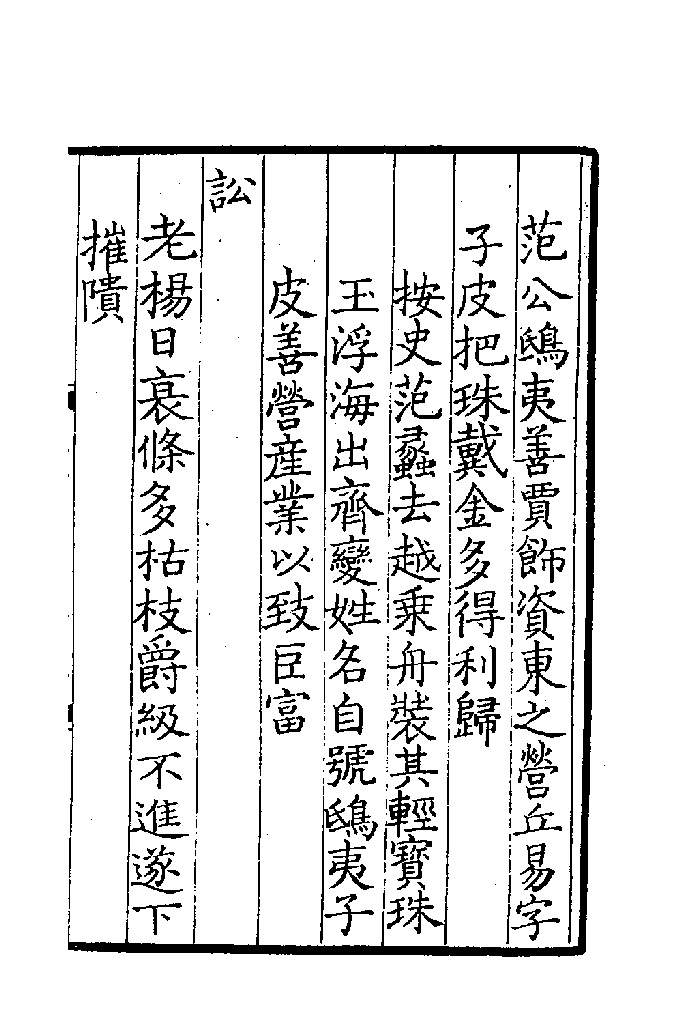 范公鴟夷善賈飾資東之營丘易字
子皮把珠戴金多得利歸
按史范蠡去越乗舟裝其輕寶珠
玉浮海出齊變姓名自號鴟夷子
皮善營産業以致巨富
訟
老楊日衰條多枯枝爵級不進遂下
摧隤